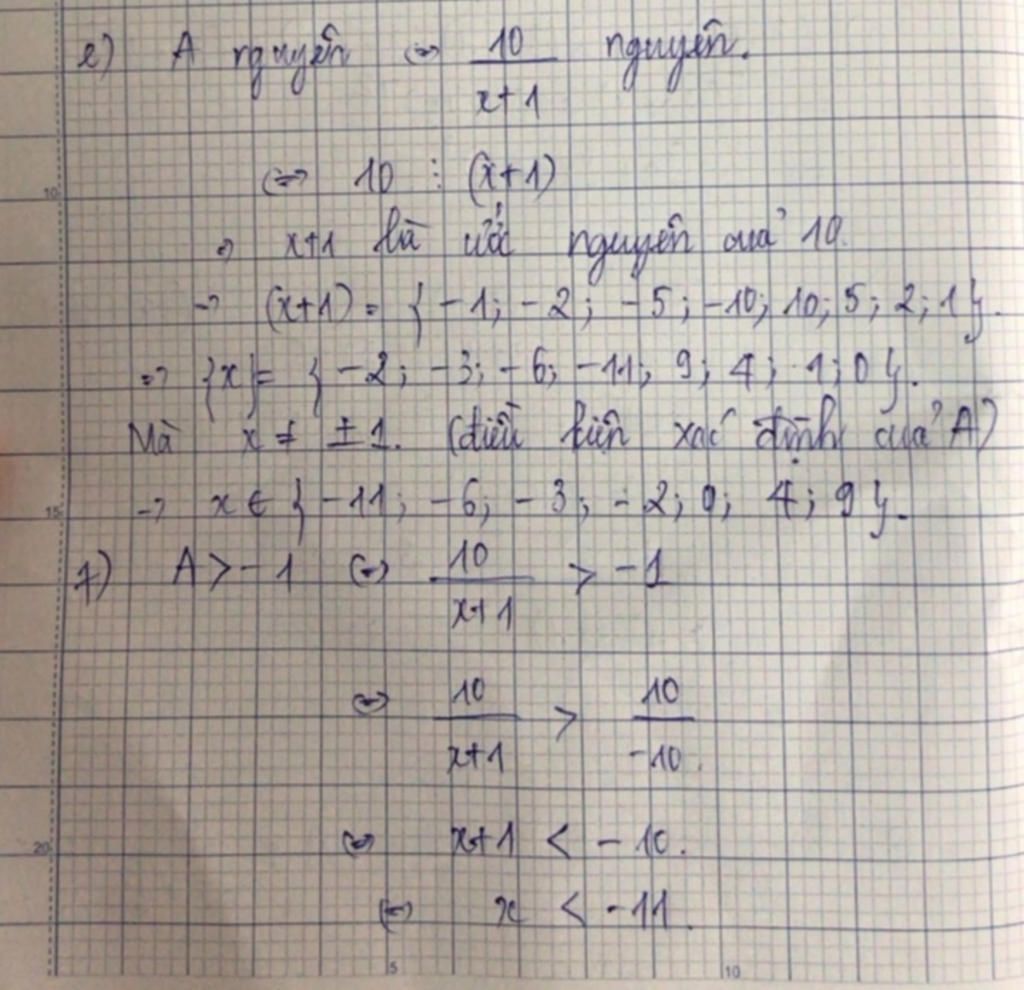 e) A nguyên ⇔ 10/(x+1) nguyên.
⇔ 10 ⋮ (x+1)
⇒ x+1 là ước nguyên của 10.
→ (x+1) = { -1; -2; -5; -10; 10; 5; 2; 1 }.
⇒ {x} = { -2; -3; -6; -11; 9; 4; 1; 0 }.
Mà x ≠ ±1. (điều kiện xác định của A)
→ x ∈ { -11; -6; -3; -2; 0; 4; 9 }.
f) A > -1 ⇔ 10/(x+1) > -1
⇔ 10/(x+1) > 10/-10.
⇔ x+1 < -10.
⇔ x < -11.
10
15
20
5
10